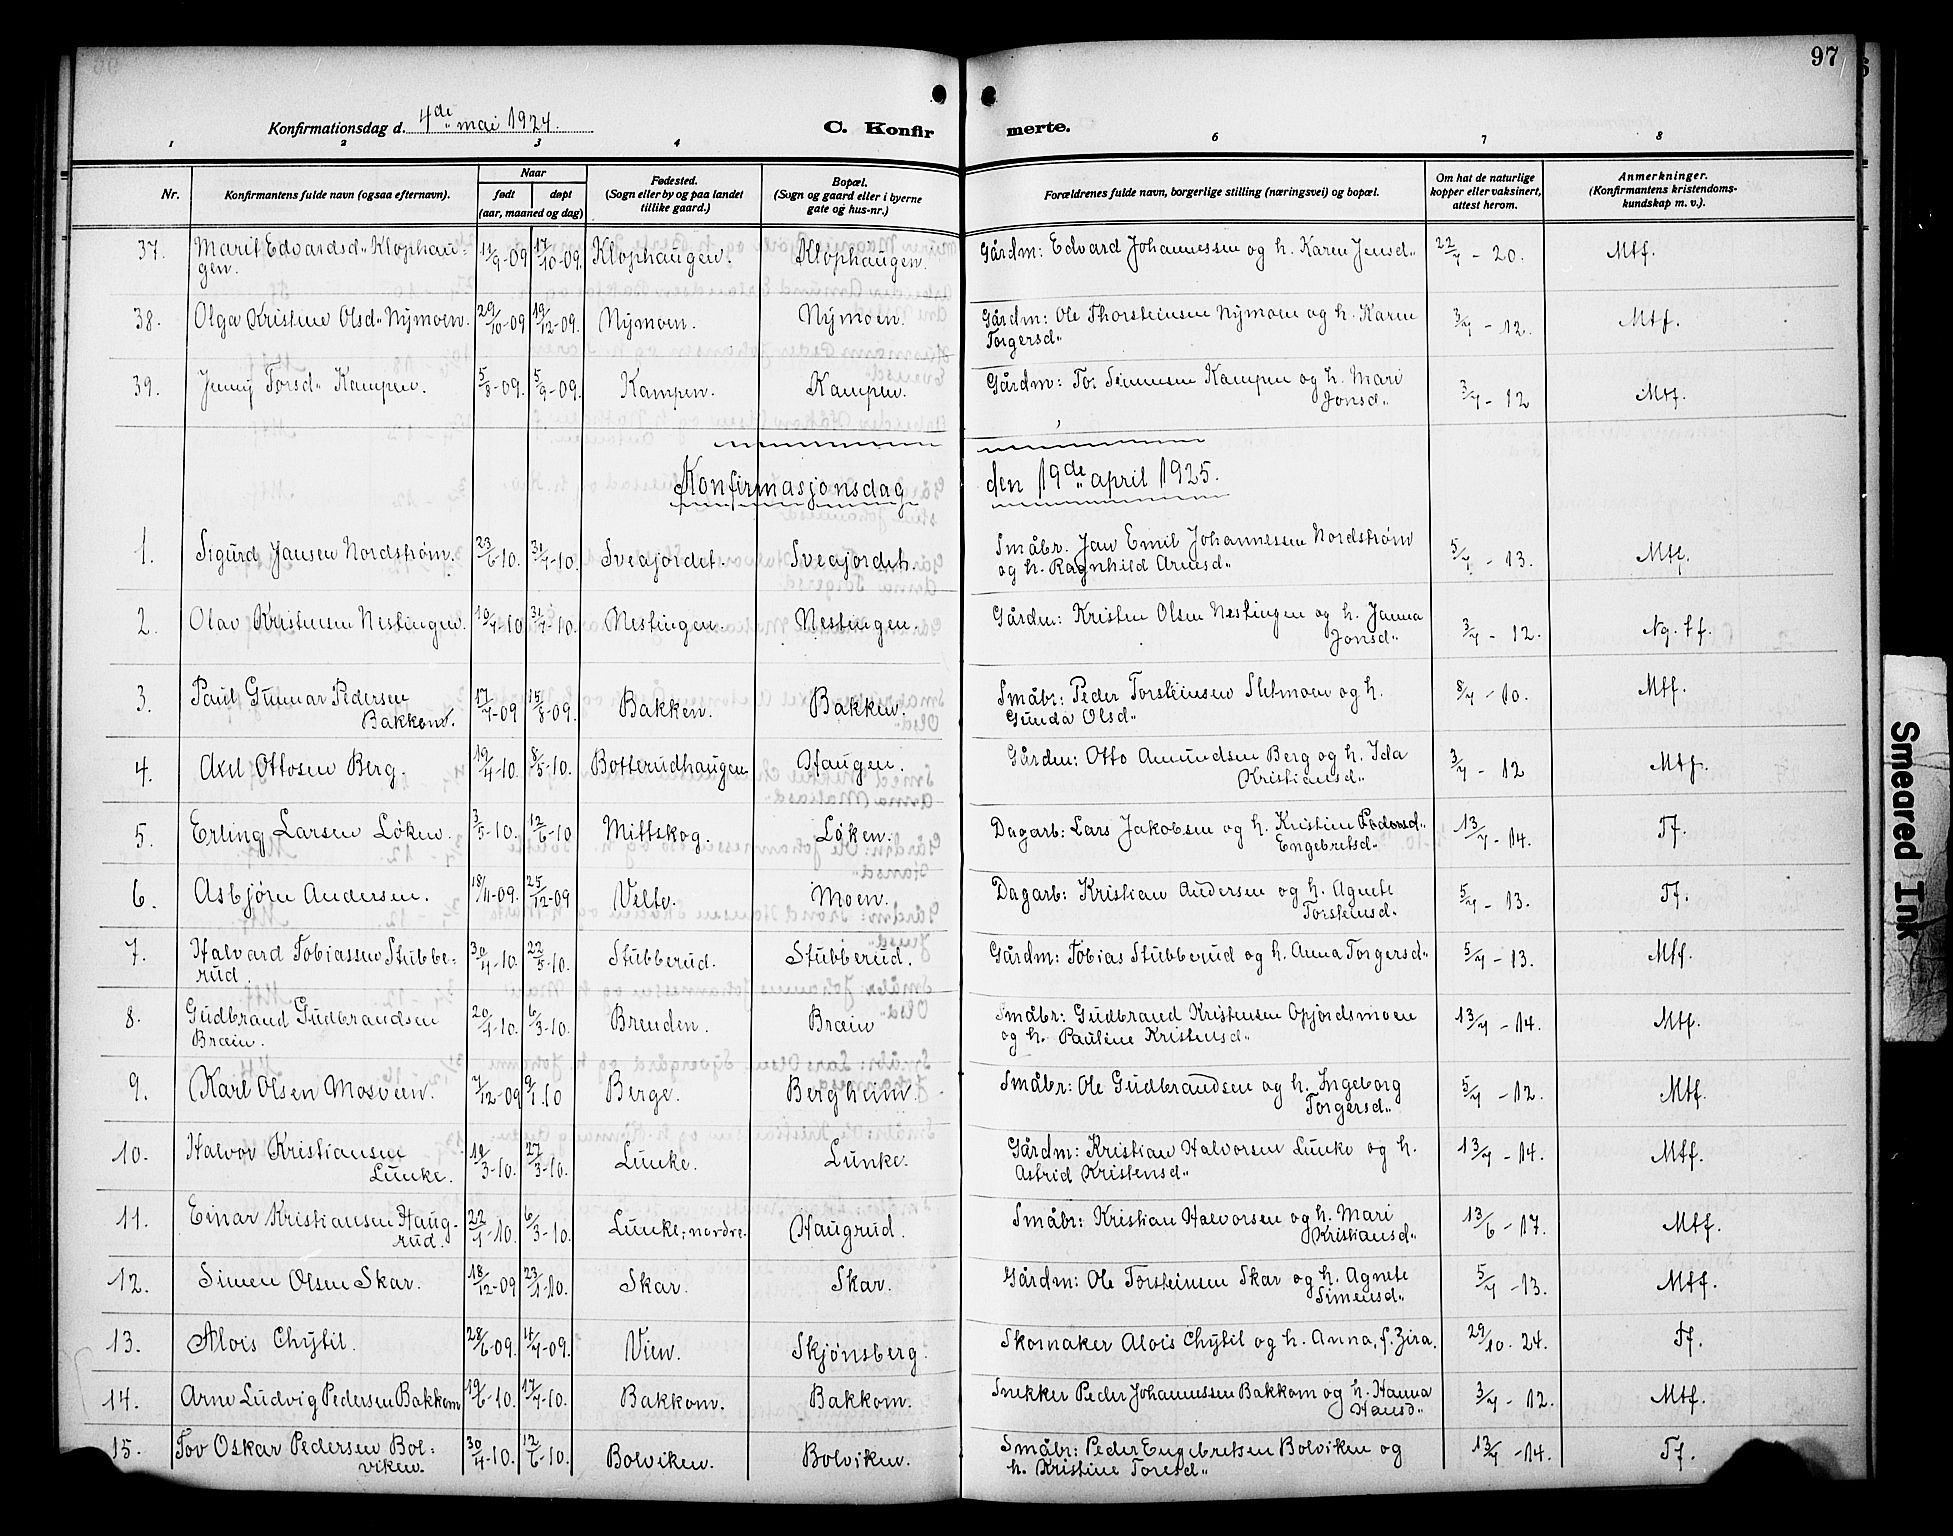 97
Konfirmationsdag d. 4de mai 1924.
C. Konfirmerte.
1 2 3 4 6 7 8
Nr.
Konfirmantens fulde navn (ogsaa efternavn).
Naar
født døpt
(aar, maaned og dag)
Fødested.
(Sogn eller by og paa landet
tillike gaard.)
Bopæl.
(Sogn og gaard eller i byerne
gate og hus-nr.)
Forældrenes fulde navn, borgerlige stilling (næringsvei) og bopæl.
Om hat de naturlige
kopper eller vaksinert,
attest herom.
Anmerkninger.
(Konfirmantens kristendoms-
kundskap m. v.).
37. Marit Edvardsd" Klophau- 11/9-09 17/10-09. Klophaugen. Klophaugen. Gårdm: Edvard Johannessen og h. Karen Jensd" 22/7-20. Mtf.
gen.
38. Olga Kristine Olsd" Nymoen. 29/10-09 19/12-09. Nymoen. Nymoen. Gårdm: Ole Thorsteinsen Nymoen og h. Karen 3/7-12. Mtf.
Torgersd"
39. Jenny Torsd" Kampen. 5/8-09. 5/9-09. Kampen. Kampen. Gårdm: Tor Simensen Kampen og h. Mari 3/7-12 Mtf.
Jonsd"
Konfirmasjonsdag den 19de april 1925.
1. Sigurd Jansen Nordstrøm. 23/6-10. 31/7-10. Sveajordet. Sveajordet. Småbr. Jan Emil Johannessen Nordstrøm 5/7-13. Mtf.
og h. Ragnhild Arnesd"
2. Olav Kristensen Nestingen. 10/7-10 31/7-10. Nestingen. Nestingen. Gårdm: Kristen Olsen Nestingen og h. Janna 3/7-12. Ng. tf.
Jonsd"
3. Paul Gunnar Pedersen 17/7-09 15/8-09. Bakken. Bakken. Småbr: Peder Torsteinsen Sletmoen og h. 8/7-10. Mtf.
Bakken. Gunda Olsd"
4. Axel Ottosen Berg. 19/4-10. 8/5-10. Botterudhaugen Haugen. Gårdm: Otto Amundsen Berg og h. Ida 3/7-12 Mtf.
Kristiansd"
5. Erling Larsen Løken. 3/5-10. 12/6-10 Mittskog. Løken. Dagarb: Lars Jakobsen og h. Kristine Pedersd" 13/7-14. Tf.
Engebretsd"
6. Asbjørn Andersen. 18/11-09. 25/12-09 Velta. Moen. Dagarb: Kristian Andersen og h. Agnete 5/7-13. Tf.
Torsteinsd"
7. Halvard Tobiassen Stubbe- 30/4-10. 22/5-10. Stubberud. Stubberud. Gårdm: Tobias Stubberud og h. Anna Torgersd" 5/7-13. Mtf.
rud.
8. Gudbrand Gudbrandsen 20/1-10. 6/3-10. Brenden. Bræin Småbr: Gudbrand Kristensen Opjordsmoen 13/7-14. Mtf.
Bræin. og h. Pauline Kristensd"
9. Karl Olsen Mosveen. 7/12-09 9/1.10 Berge. Bergheim. Småbr: Ole Gudbrandsen og h. Ingeborg 5/7-12. Mtf.
Torgersd"
10. Halvor Kristiansen 19/3-10. 27/3-10. Lunke. Lunke. Gårdm: Kristian Halvorsen Lunke og h. 13/7-14. Mtf.
Lunke. Astrid Kristensd"
11. Einar Kristiansen Haug- 22/1-10. 6/3-10. Lunke, nordre. Haugrud. Småbr: Kristian Halvorsen og h. Mari 13/6-17. Mtf.
rud. Kristiansd"
12. Simen Olsen Skar. 18/12-09 23/1-10. Skar. Skar. Gårdm: Ole Torsteinsen Skar og h. Agnete 5/7-13. Mtf.
Simensd"
13. Alois Chytil. 28/6-09. 4/7-09. Vien. Skjønsberg. Skomaker Alois Chytil og h. Anna, f. Zira. 29/10-24. Tf.
14. Arne Ludvig Pedersen Bakkom 19/6-10. 17/7-10. Bakkom. Bakkom. Snekker Peder Johannessen Bakkom og h. Hanna 3/7-12. Mtf.
Hansd"
15. Tov Oskar Pedersen Bol- 30/4-10. 12/6-10. Bolviken. Bolviken. Småbr: Peder Engebretsen Bolviken og 13/7-14. Tf.
viken. h. Kristine Toresd"
Smeared Ink